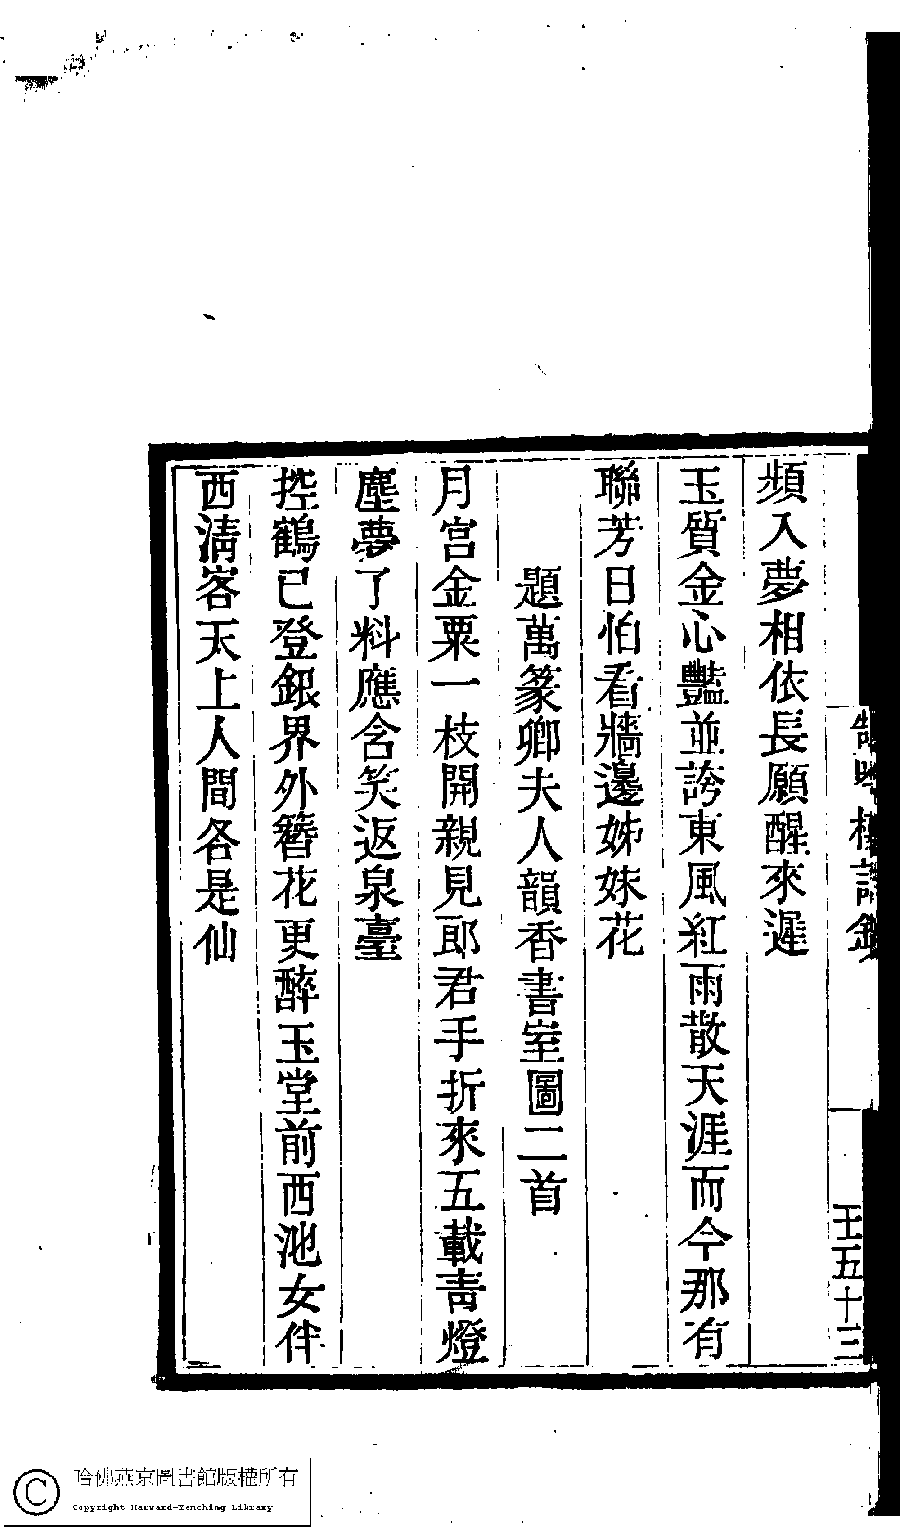 頻入夢相依長願醒來遲
玉質金心豔並誇東風紅雨散天涯而今那有
聯芳日怕看牆邊姊妹花
題萬篆卿夫人韻香書室圖二首
月宮金粟一枝開親見郎君手折來五載青燈
塵夢了料應含笑返泉臺
控鶴已登銀界外簪花更醉玉堂前西池女伴
西清客天上人間各是仙
壬五十三
哈佛燕京圖書館版權所有
Copyright Harvard-Yenching Library